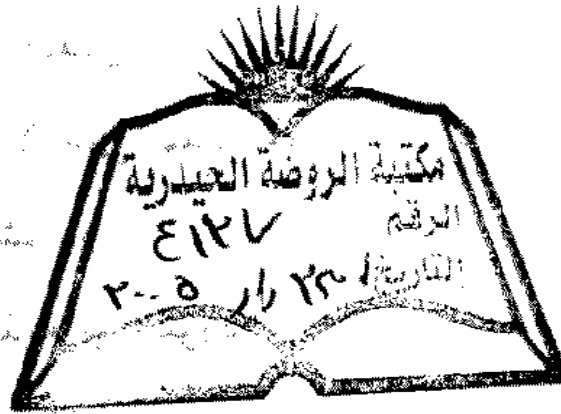 مكتبية الروضة الحيدرية
الرقم ٤١٢٧
التاريخ ٢٠٠٥